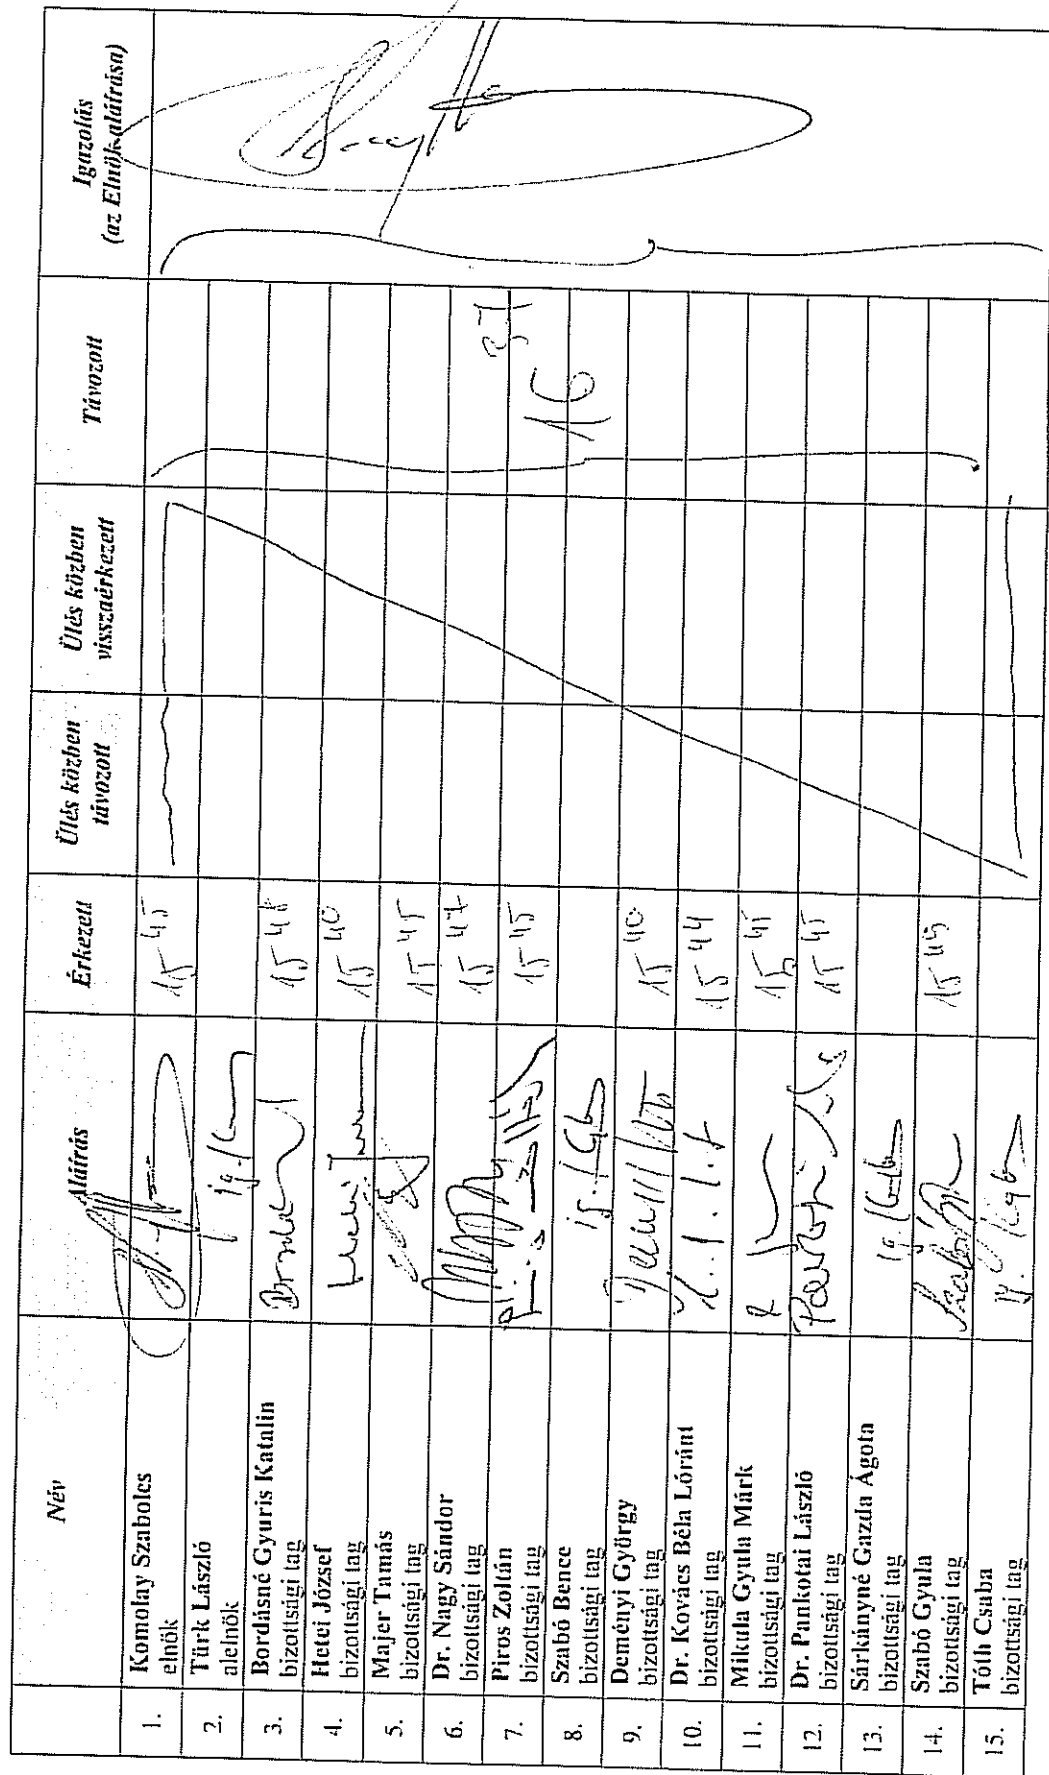 Név Aláírás Érkezett Ülés közben távozott Ülés közben visszaérkezett Távozott Igazolás (az Elnök aláírása)
1. Komolay Szabolcs
elnök 15 45
2. Türk László
alelnök
3. Bordásné Gyuris Katalin
bizottsági tag
4. Hetei József
bizottsági tag 15 40
5. Majer Tamás
bizottsági tag 15 45
6. Dr. Nagy Sándor
bizottsági tag 15 47
7. Piros Zoltán
bizottsági tag 15 45
16 37
8. Szabó Bence
bizottsági tag
9. Deményi György
bizottsági tag 15 40
10. Dr. Kovács Béla Lóránt
bizottsági tag 15 44
11. Mikula Gyula Márk
bizottsági tag 15 45
12. Dr. Pankotai László
bizottsági tag 15 45
13. Sárkányné Gazda Ágota
bizottsági tag
14. Szabó Gyula
bizottsági tag 15 45
15. Tóth Csaba
bizottsági tag